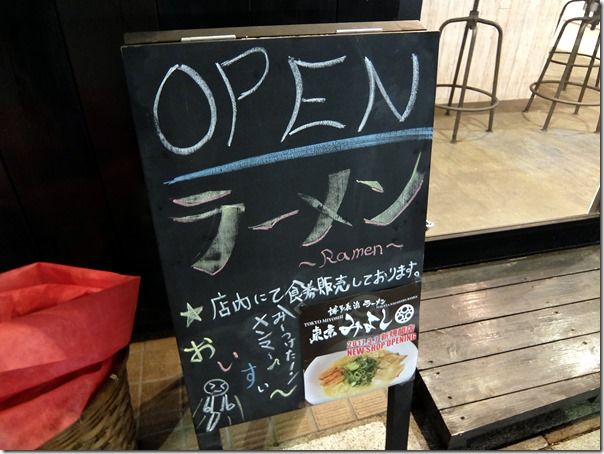 OPEN
ラーメン
~Ramen~
★店内にて食券販売しております。
おいすい~
博多長浜ラーメン
TOKYO MIYOSHI
東京 みよし
NEW SHOP OPENING